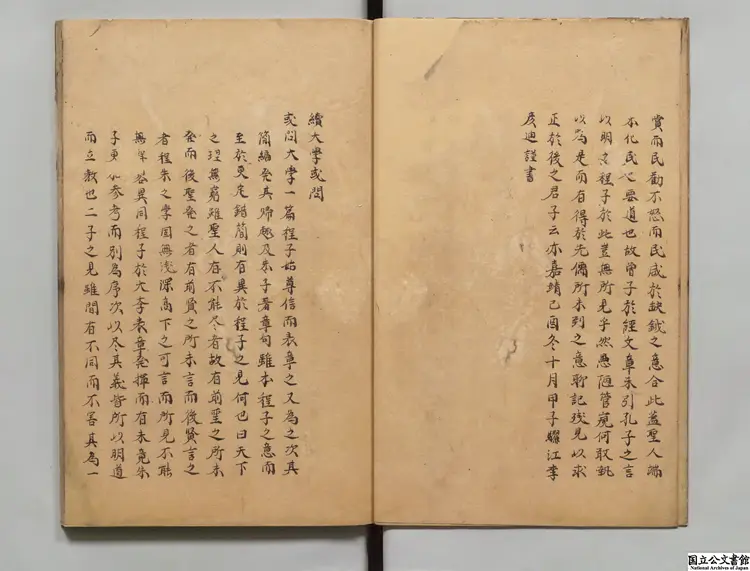 賞而民勸不怒而民威於鈇鉞之意合此蓋聖人端
本化民之要道也故曾子於經文章末引孔子之言
以明之程子於此豈無所見乎然愚陋管窺何敢執
以為是而有得於先儒所未到之意聊記淺見以求
正於後之君子云亦嘉靖己酉冬十月甲子驪江李
彦迪謹書
續大學或問
或問大學一篇程子始尊信而表章之又為之次其
簡編發其歸趣及朱子著章句雖本程子之意而
至於更定錯簡則有異於程子之見何也曰天下
之理無窮雖聖人有不能尽者故有前聖之所未
發而後聖發之者有前賢之所未言而後賢言之
者程朱之學固無淺深高下之可言而所見不能
無少異同程子於大學表章發揮而有未竟朱
子更加參考而別為序次以尽其義皆所以明道
而立教也二子之見雖間有不同而不害其為一
国立公文書館
National Archives of Japan